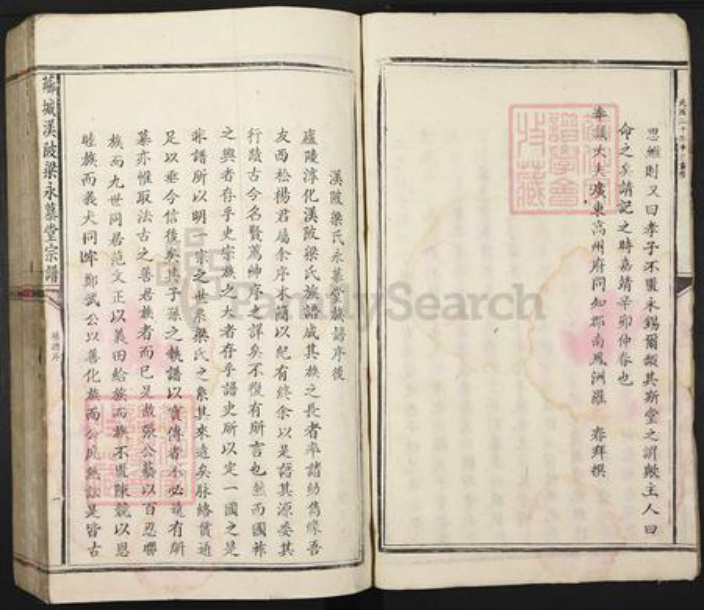 思繼則又曰孝子不匱永錫爾類其斯堂之謂歟主人曰
命之矣請記之時嘉靖辛卯仲春也
奉議大夫廣東高州府同知郡南鳳洲羅 春拜撰
漢陂梁氏永慕堂族譜序後
廬陵淳化漢陂梁氏族譜成其族之長者率諸幼
友西松楊君屬余序末簡以紀有終余以是譜其源委其
行蹟古今名賢薦紳序之詳矣不復有所言也然而國
之興者存乎史宗族之大者存乎譜史所以定一國之是
譜所以明一宗之世系梁氏之系其來遠矣脉絡貫通
足以垂今信後矣其子孫之執譜以寶傳者不必競有所
慕亦惟取法古之善君族者而已是故張公藝以百忍聯
族而九世同居范文正以義田給族而族不匱陳競以恩
睦族而義犬同牢鄭武公以善化族而公成無訟是皆古
漢陂梁永慕堂宗譜
FamilySearch